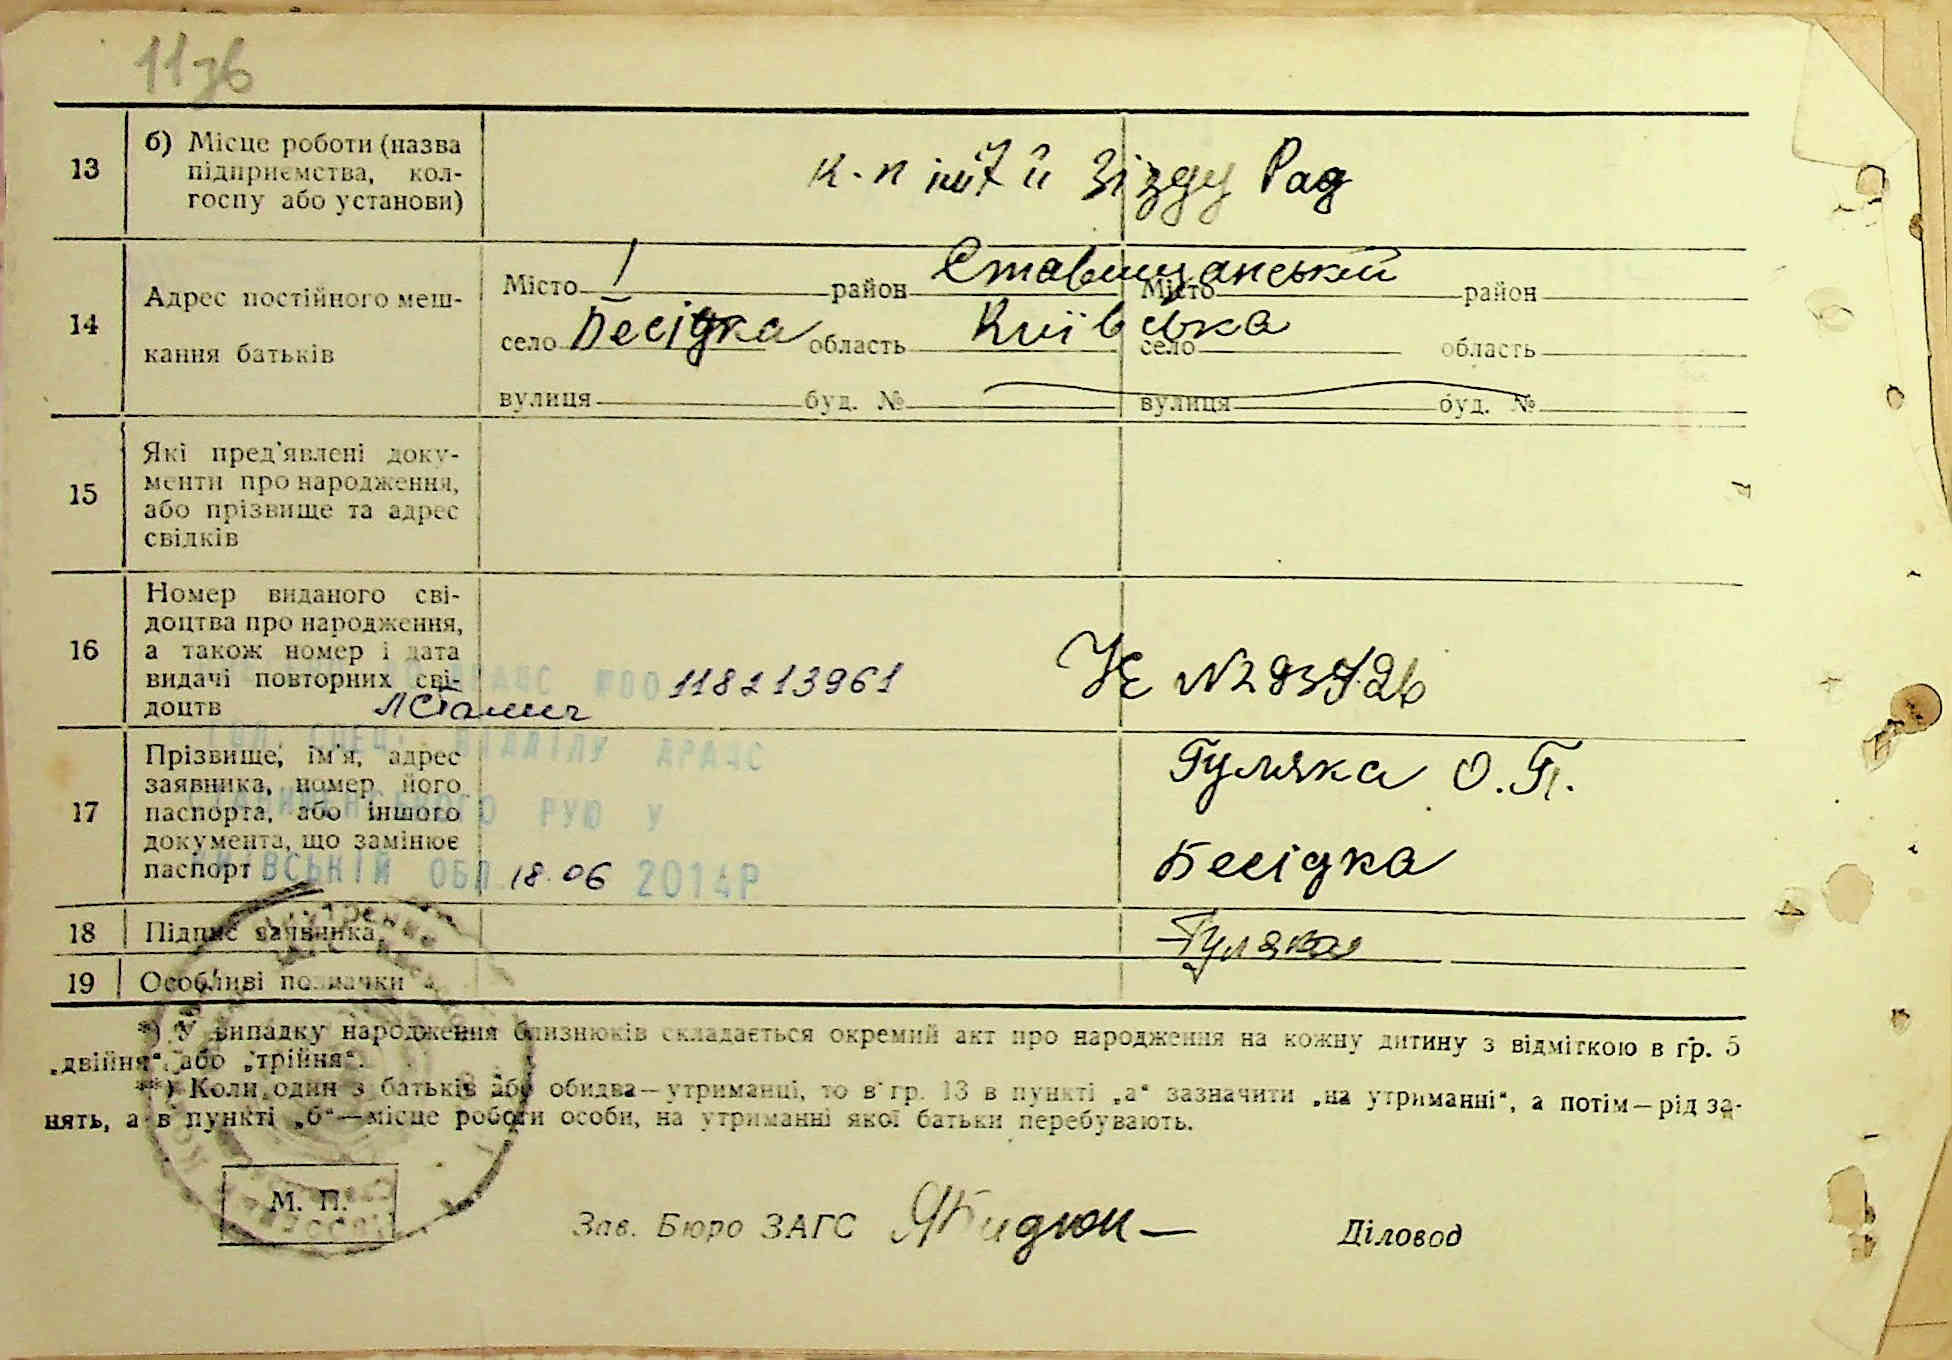 11зв
13 б) Місце роботи (назва
підприємства, кол-
госпу або установи)
к-п ім 7й Зізду Рад
14 Адрес постійного меш-
кання батьків
Місто / район Ставищанський Місто район
село Бесідка область Київська село область
вулиця буд. № вулиця буд. №
15 Які пред'явлені доку-
менти про народження,
або прізвище та адрес
свідків
16 Номер виданого сві-
доцтва про народження,
а також номер і дата
видачі повторних сві-
доцтв
АРАЦС №00 118213961
УЄ №
17 Прізвище, ім'я, адрес
заявника, номер його
паспорта, або іншого
документа, що замінює
паспорт
ВІДДІЛУ ДРАЦС
РУЮ У
КИЇВСЬКІЙ ОБЛ 18.06 2014Р
Гуляка О.П.
Бесідка
18 Підпис заявника
Гуляка
19 Особливі позначки
*) У випадку народження близнюків складається окремий акт про народження на кожну дитину з відміткою в гр. 5
„двійня“ або „трійня“.
**) Коли один з батьків або обидва—утриманці, то в гр. 13 в пункті „а“ зазначити „на утриманні“, а потім—рід за-
нять, а в пункті „б“—місце роботи особи, на утриманні якої батьки перебувають.
М. П.
Зав. Бюро ЗАГС Діловод